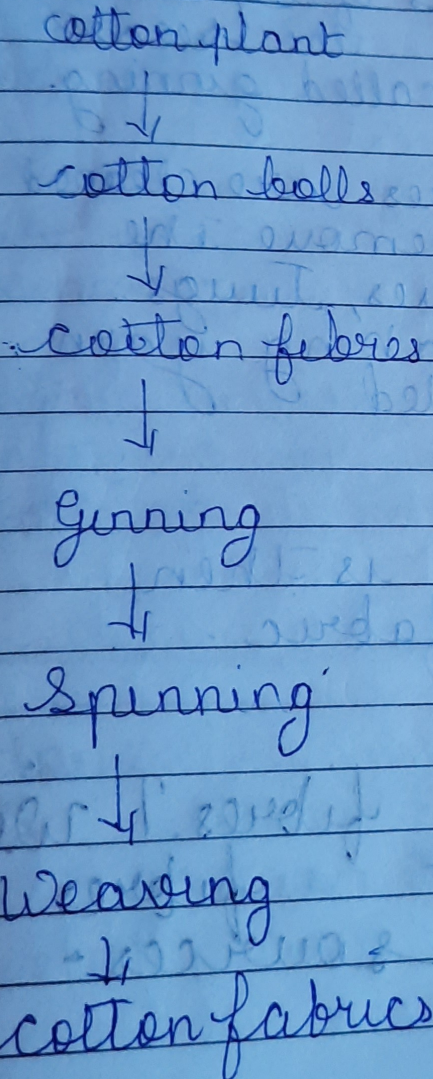 cotton plant
↓
cotton bolls
↓
cotton fibres
↓
Ginning
↓
Spinning
↓
Weaving
↓
cotton fabrics